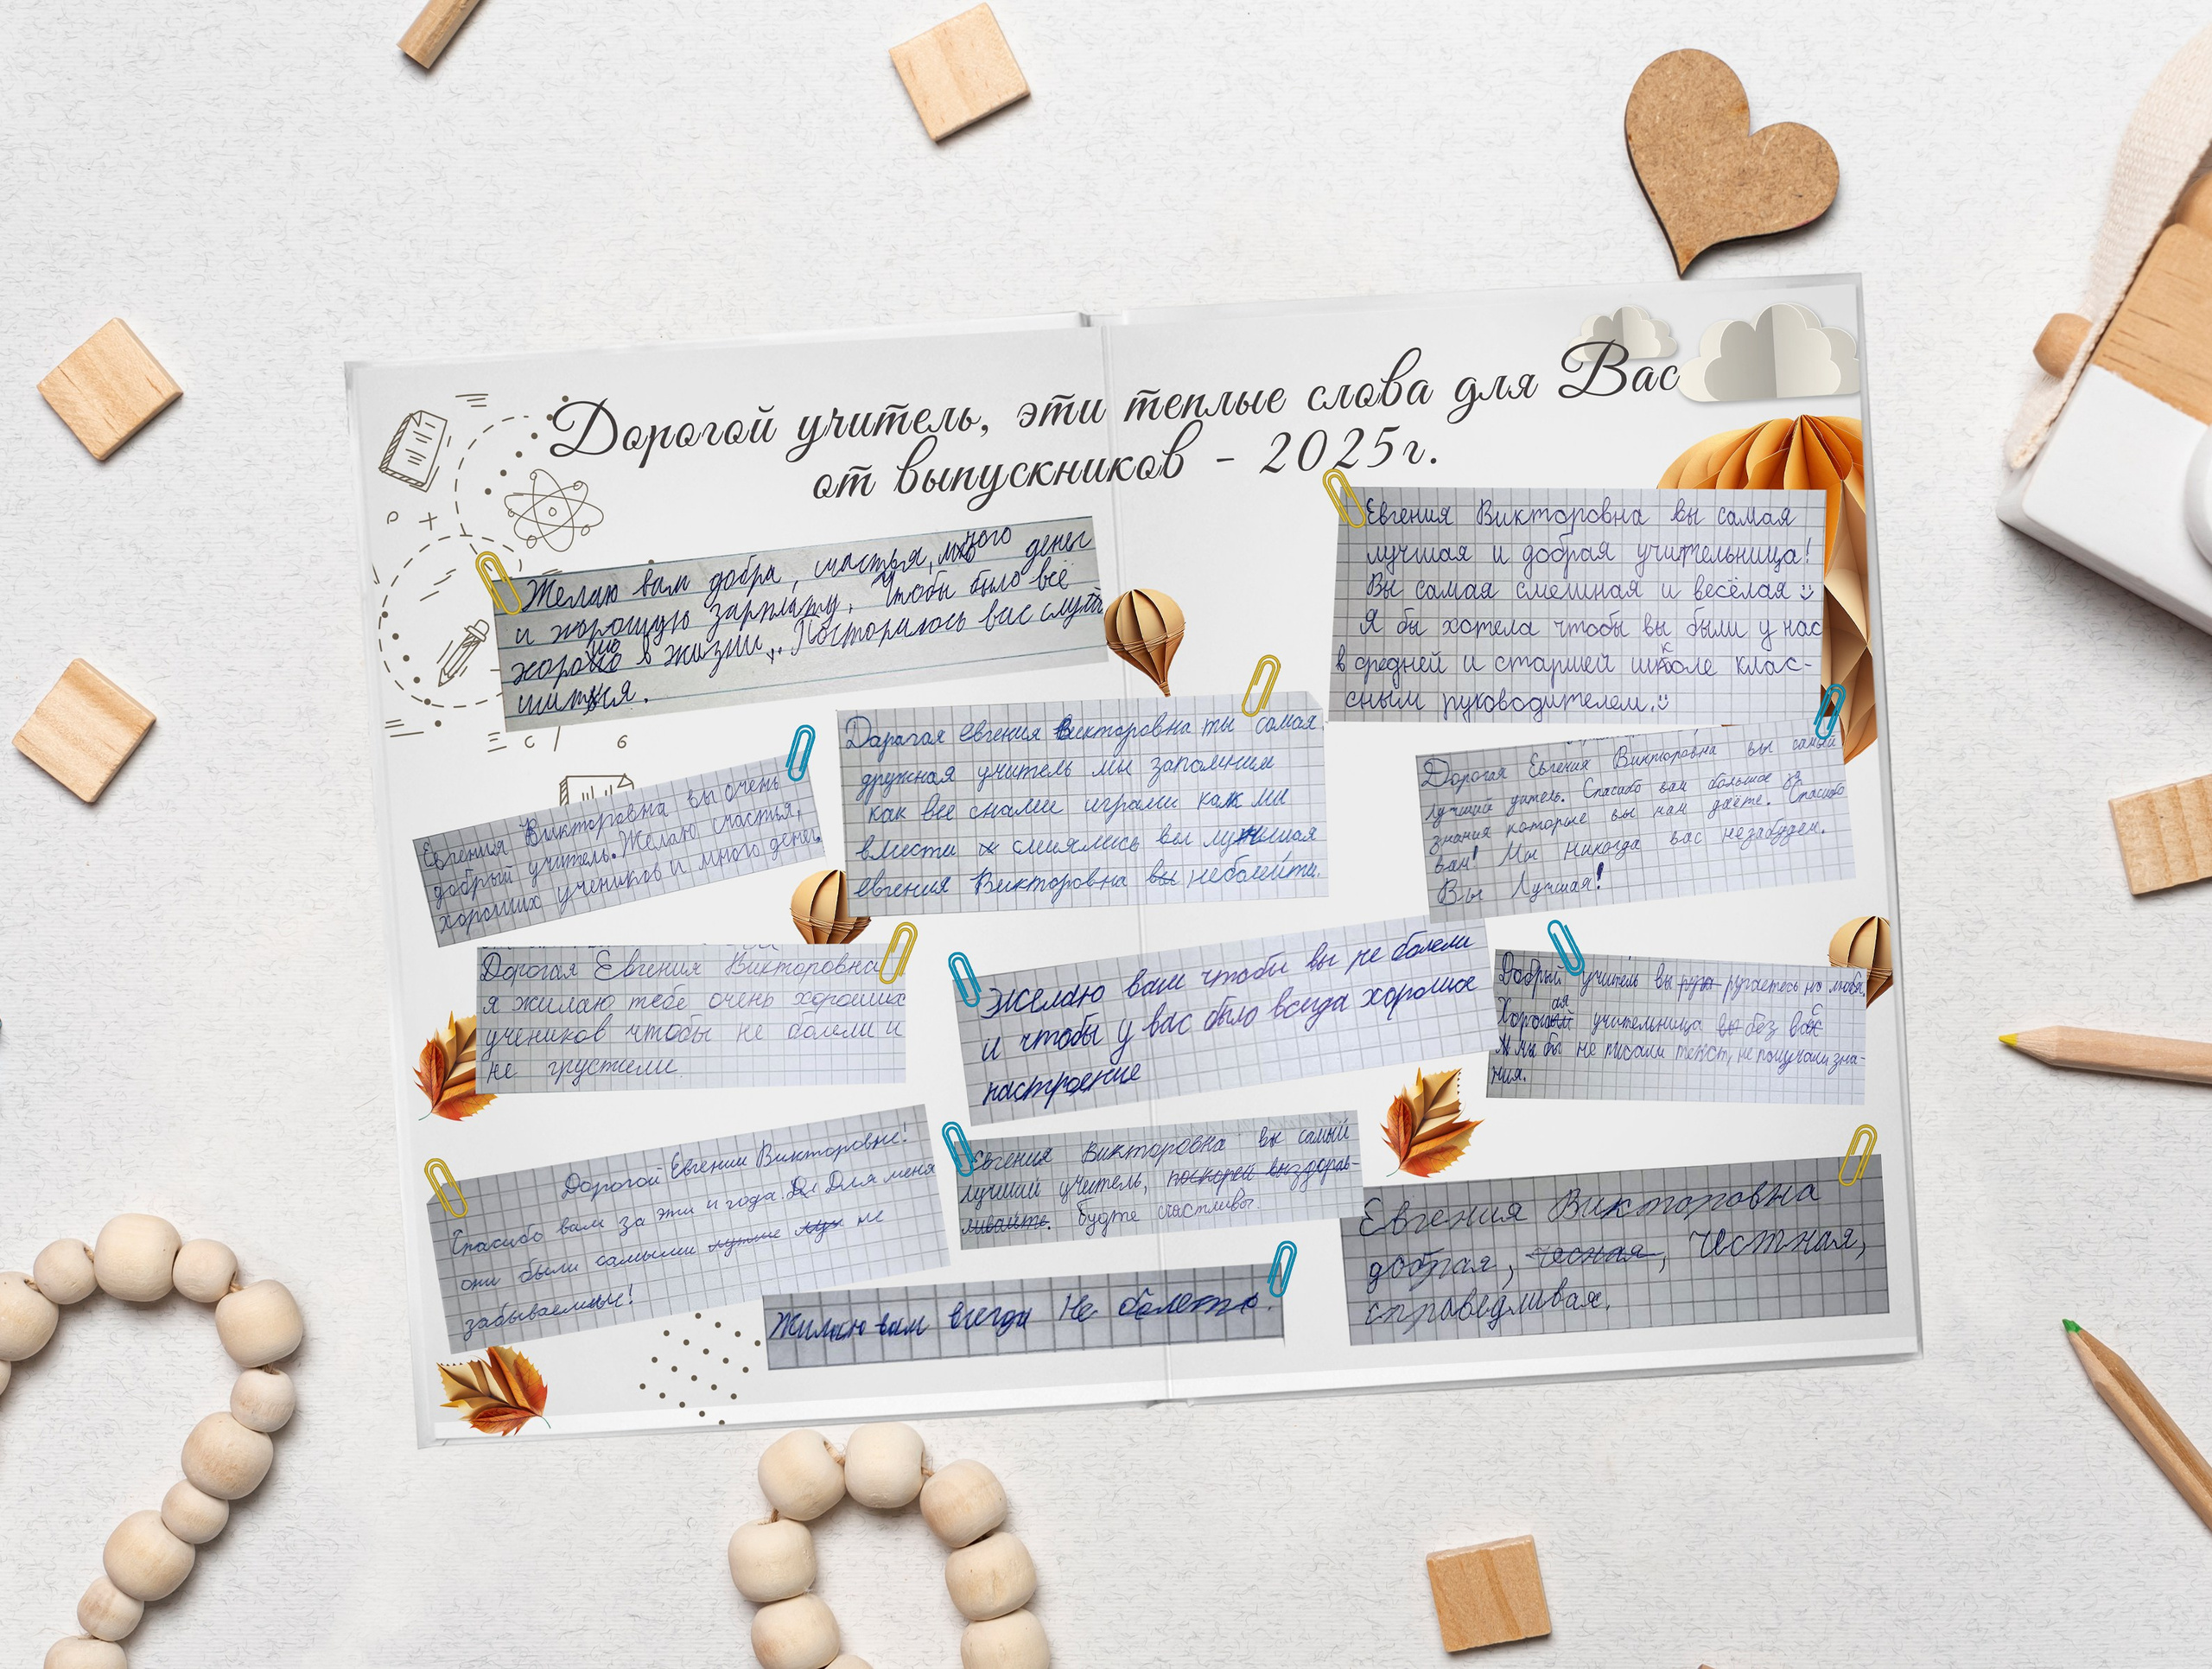 Дорогой учитель, эти теплые слова для Вас
от выпускников - 2025г.
Желаю вам добра, счастья, много денег
и хорошую зарплату, Чтобы было всё
хорошо в жизни. Постораюсь вас слуша
шится.
Евгения Викторовна вы самая
лучшая и добрая учительница!
Вы самая смешная и весёлая
Я бы хотела чтобы вы были у нас
в средней и старшей школе клас-
сным руководителем.
Евгения Викторовна вы очень
добрый учитель. Желаю счастья,
хороших учеников и много денег.
Дарагая евгения викторовна ты самая
дружная учитель мы запомним
как все снами играли как ми
вмести смиялись вы лучшая
евгения Викторовна вы неболейти.
Дорогая Евгения Викторовна вы самый
лучший учитель. Спасибо вам большое за
знания которые вы нам даёте. Спасибо
вам! Мы никогда вас незабудем.
Вы Лучшая!
Дорогая Евгения Викторовна
я жилаю тебе очень хороших
учеников чтобы не болели и
не грустили.
Желаю вам чтобы вы не болели
и чтобы у вас было всегда хорошое
настроение
Добрый учитель вы ругаетесь но любя.
Хорошая учительница без вас
мы бы не писали текст, не получали зна-
ния.
Дорогой Евгении Викторовне!
Спасибо вам за эти 4 года. Для меня
они были самыми не
забываемым!
Евгения Викторовна вы самый
лучший учитель, поскорей выздорав-
ливайте. будте счастливы.
Жилаю вам всегда Не болеть.
Евгения Викторовна
добрая, чесная, честная,
справедливая.